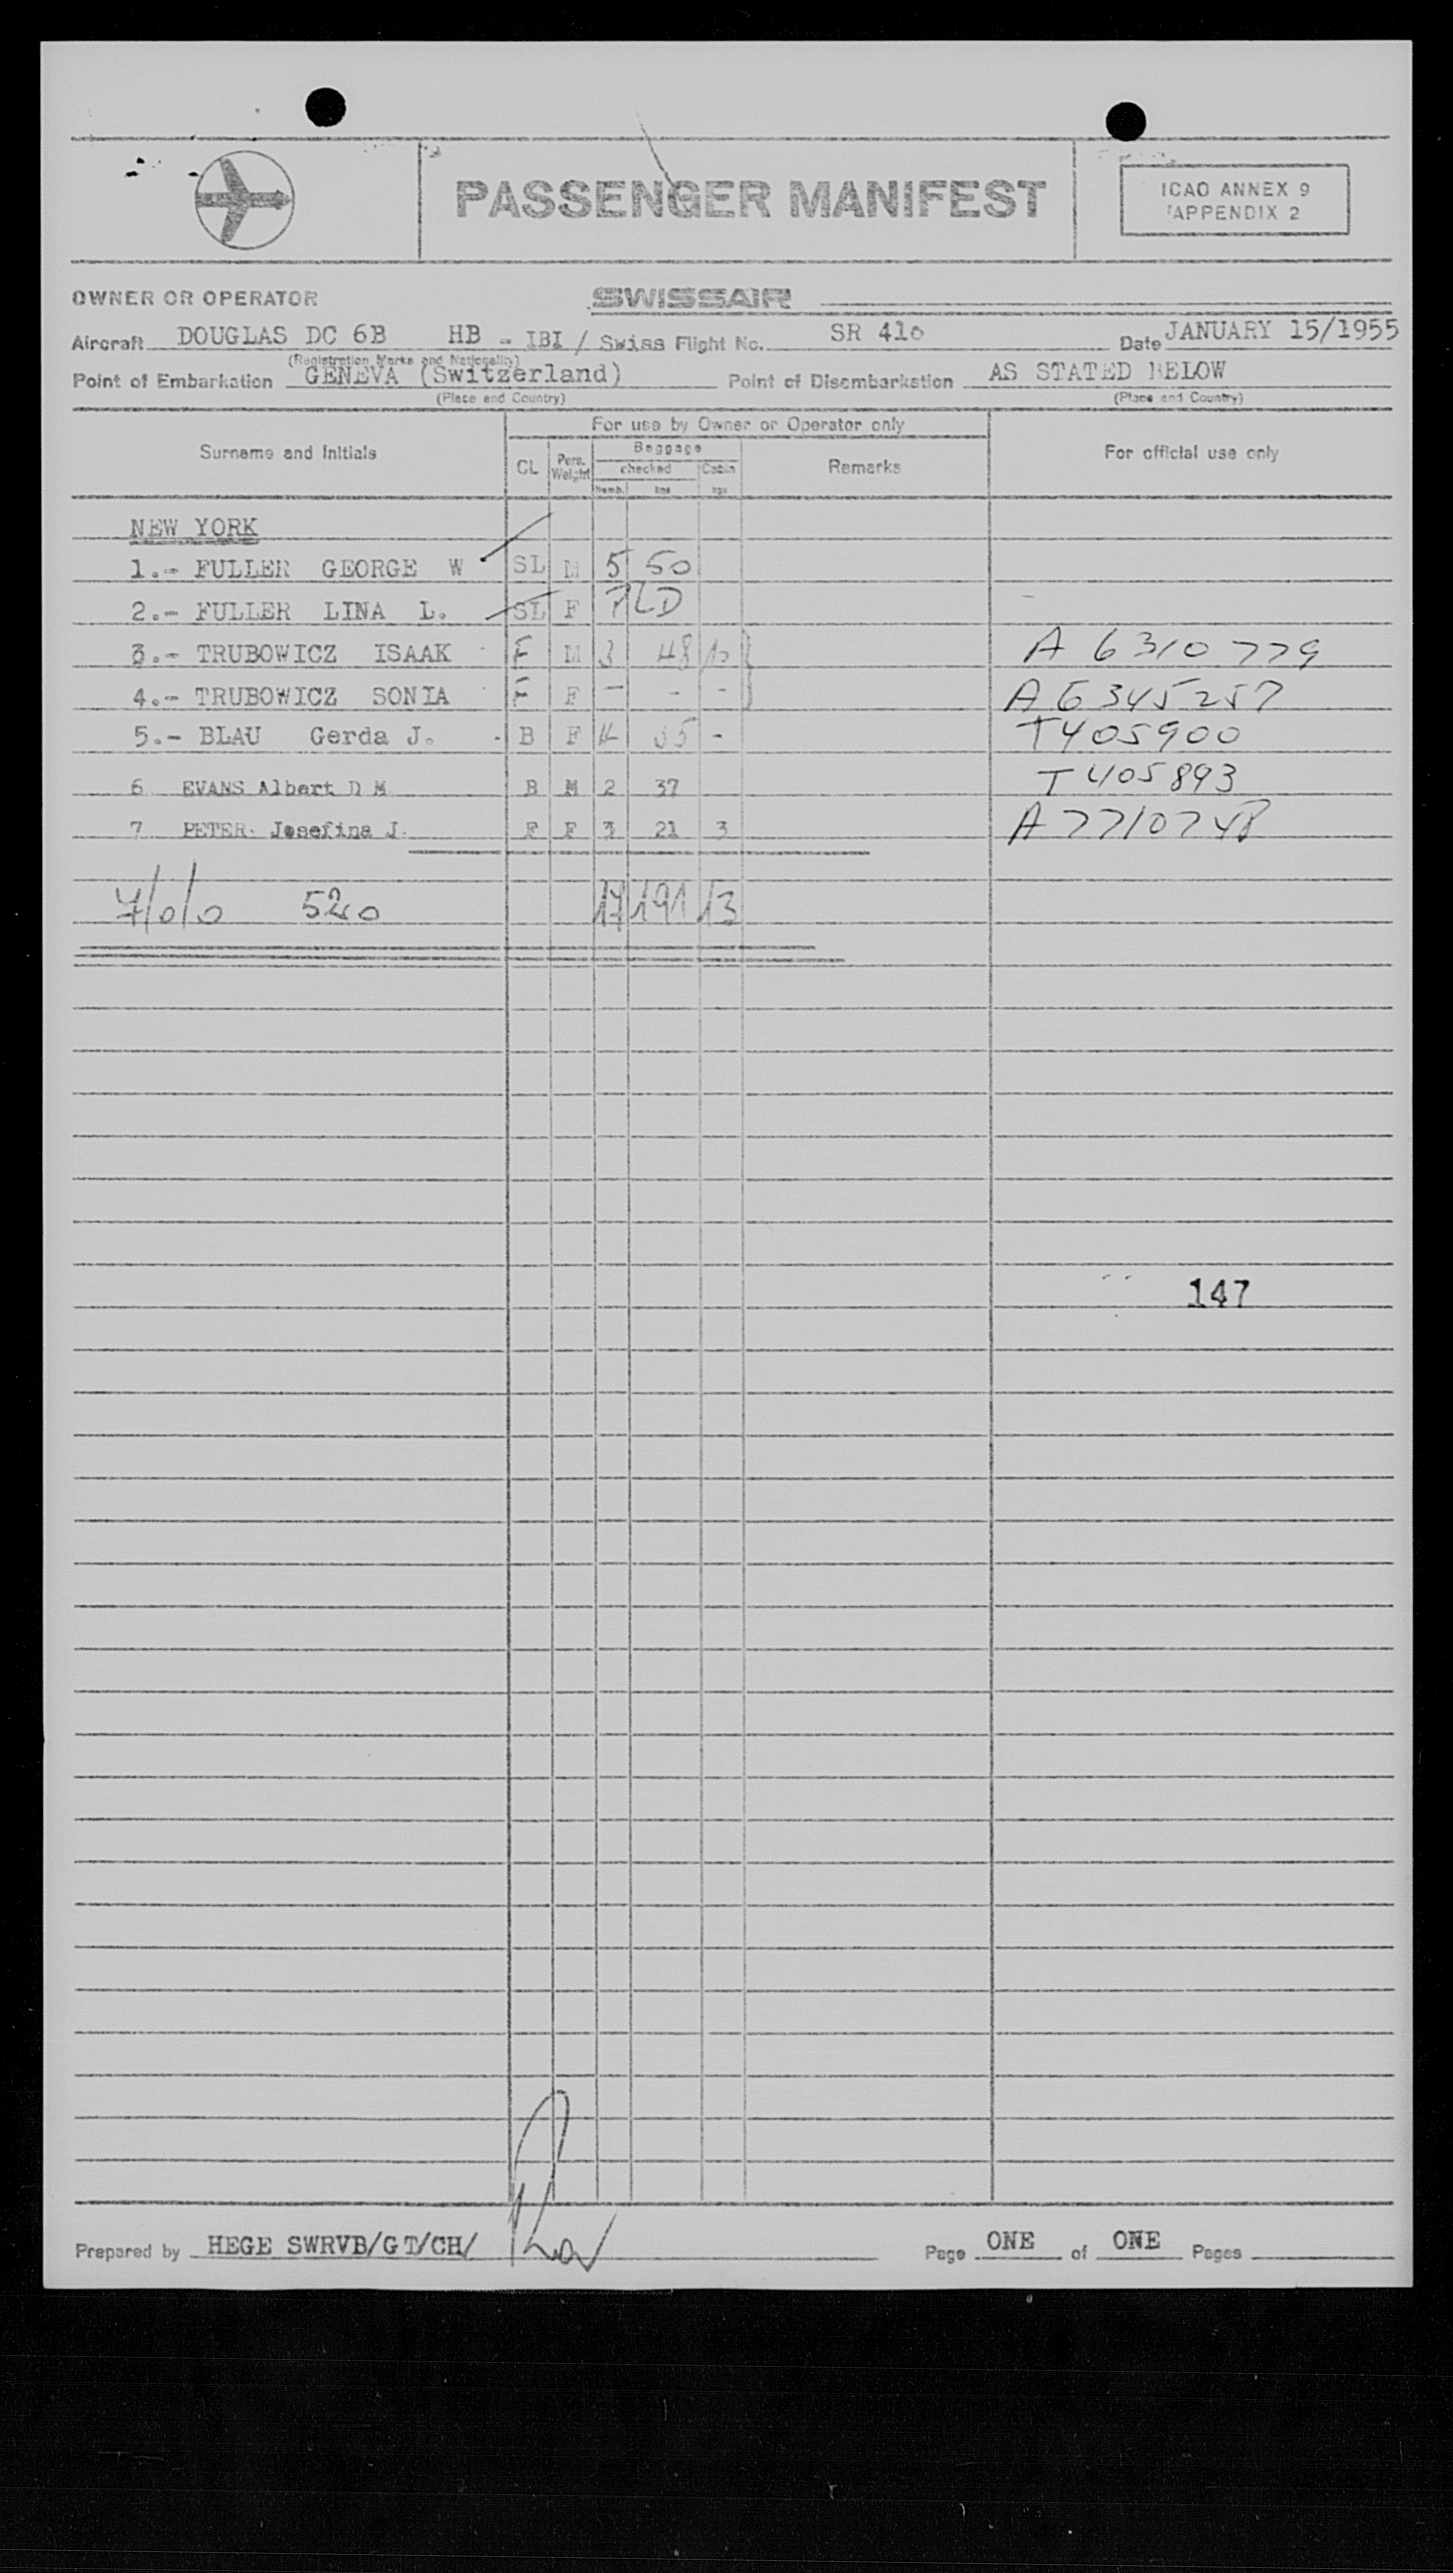 PASSENGER MANIFEST
ICAO ANNEX 9
APPENDIX 2
OWNER OR OPERATOR SWISSAIR
Aircraft DOUGLAS DC 6B HB - IBI / Swiss Flight No. SR 410 Date JANUARY 15/1955
(Registration Marks and Nationality)
Point of Embarkation GENEVA (Switzerland) Point of Disembarkation AS STATED BELOW
(Place and Country) (Place and Country)
For use by Owner or Operator only
Surname and Initials CL Pers. Weight Baggage checked Cabin Remarks For official use only
Numb. kgs kgs
NEW YORK
1.- FULLER GEORGE W SL M 5 50
2.- FULLER LINA L. SL F PLD
3.- TRUBOWICZ ISAAK F M 3 48 10 A 6310779
4.- TRUBOWICZ SONIA F F - - - A6345257
5.- BLAU Gerda J. B F 4 35 - T405900
6 EVANS Albert D M B M 2 37 T405893
7 PETER Josefina J. F F 3 21 3 A7710748
7/0/0 520 17 191 13
147
Prepared by HEGE SWRVB/GT/CH/ Page ONE of ONE Pages